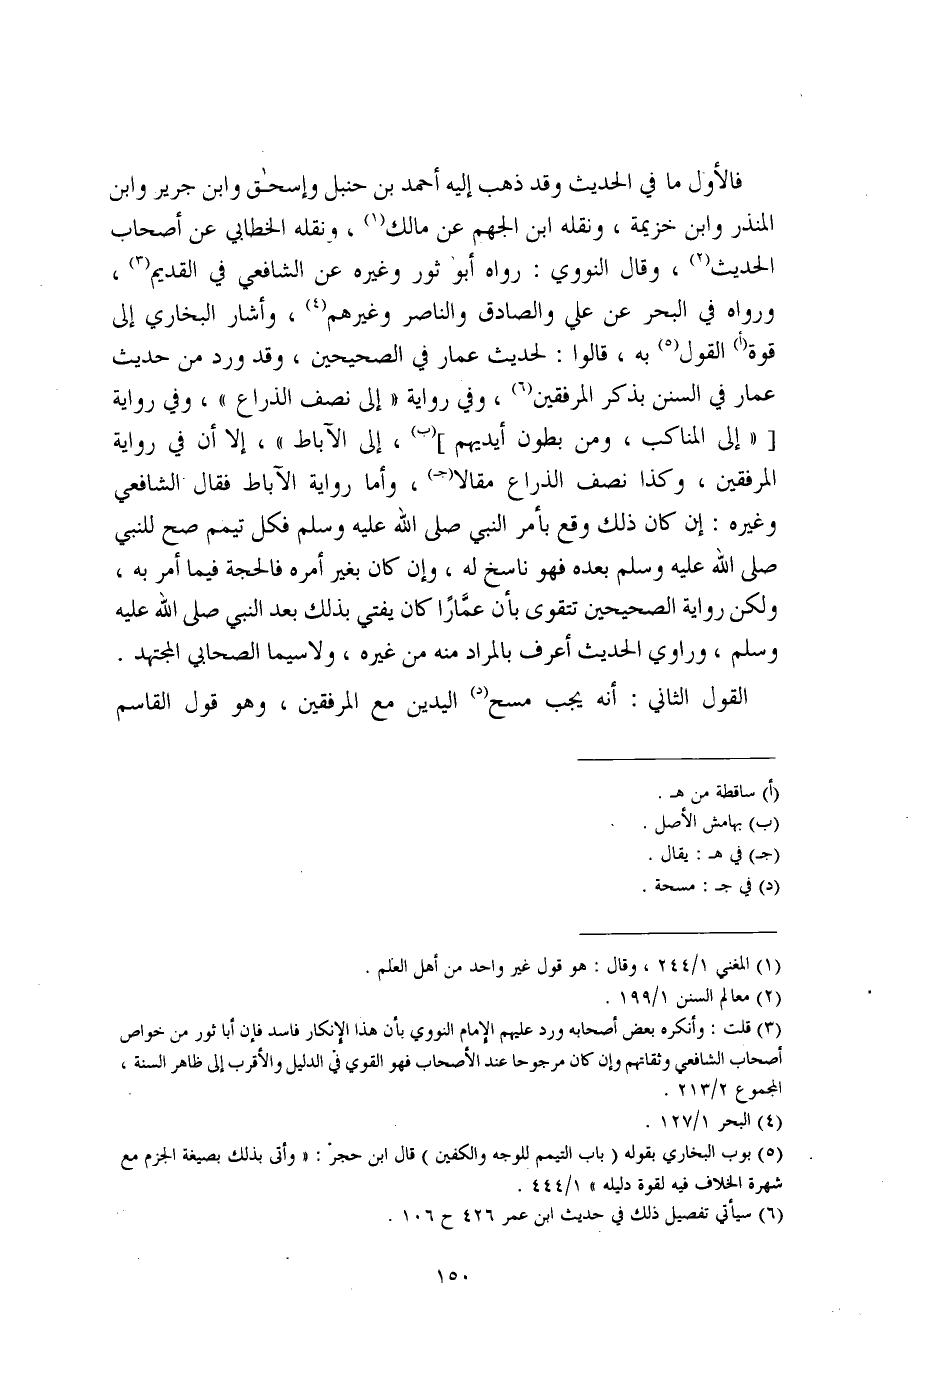 فالأول ما في الحديث وقد ذهب إليه أحمد بن حنبل وإسحٰق وابن جرير وابن
المنذر وابن خزيمة ، ونقله ابن الجهم عن مالك(١) ، ونقله الخطابي عن أصحاب
الحديث(٢) ، وقال النووي : رواه أبو ثور وغيره عن الشافعي في القديم(٣) ،
ورواه في البحر عن علي والصادق والناصر وغيرهم(٤) ، وأشار البخاري إلى
قوة(أ) القول(٥) به ، قالوا : لحديث عمار في الصحيحين ، وقد ورد من حديث
عمار في السنن بذكر المرفقين(٦) ، وفي رواية « إلى نصف الذراع » ، وفي رواية
[ « إلى المناكب ، ومن بطون أيديهم ](ب) ، إلى الآباط » ، إلا أن في رواية
المرفقين ، وكذا نصف الذراع مقالا(جـ) ، وأما رواية الآباط فقال الشافعي
وغيره : إن كان ذلك وقع بأمر النبي صلى الله عليه وسلم فكل تيمم صح للنبي
صلى الله عليه وسلم بعده فهو ناسخ له ، وإن كان بغير أمره فالحجة فيما أمر به ،
ولكن رواية الصحيحين تتقوى بأن عمَّارًا كان يفتي بذلك بعد النبي صلى الله عليه
وسلم ، وراوي الحديث أعرف بالمراد منه من غيره ، ولاسيما الصحابي المجتهد .
القول الثاني : أنه يجب مسح(د) اليدين مع المرفقين ، وهو قول القاسم
(أ) ساقطة من هـ .
(ب) بهامش الأصل .
(جـ) في هـ : يقال .
(د) في جـ : مسحة .
(١) المغني ٢٤٤/١ ، وقال : هو قول غير واحد من أهل العلم .
(٢) معالم السنن ١٩٩/١ .
(٣) قلت : وأنكره بعض أصحابه ورد عليهم الإمام النووي بأن هذا الإنكار فاسد فإن أبا ثور من خواص
أصحاب الشافعي وثقاتهم وإن كان مرجوحا عند الأصحاب فهو القوي في الدليل والأقرب إلى ظاهر السنة ،
المجموع ٢١٣/٢ .
(٤) البحر ١٢٧/١ .
(٥) بوب البخاري بقوله ( باب التيمم للوجه والكفين ) قال ابن حجر : « وأتى بذلك بصيغة الجزم مع
شهرة الخلاف فيه لقوة دليله » ٤٤٤/١ .
(٦) سيأتي تفصيل ذلك في حديث ابن عمر ٤٢٦ ح ١٠٦ .
١٥٠